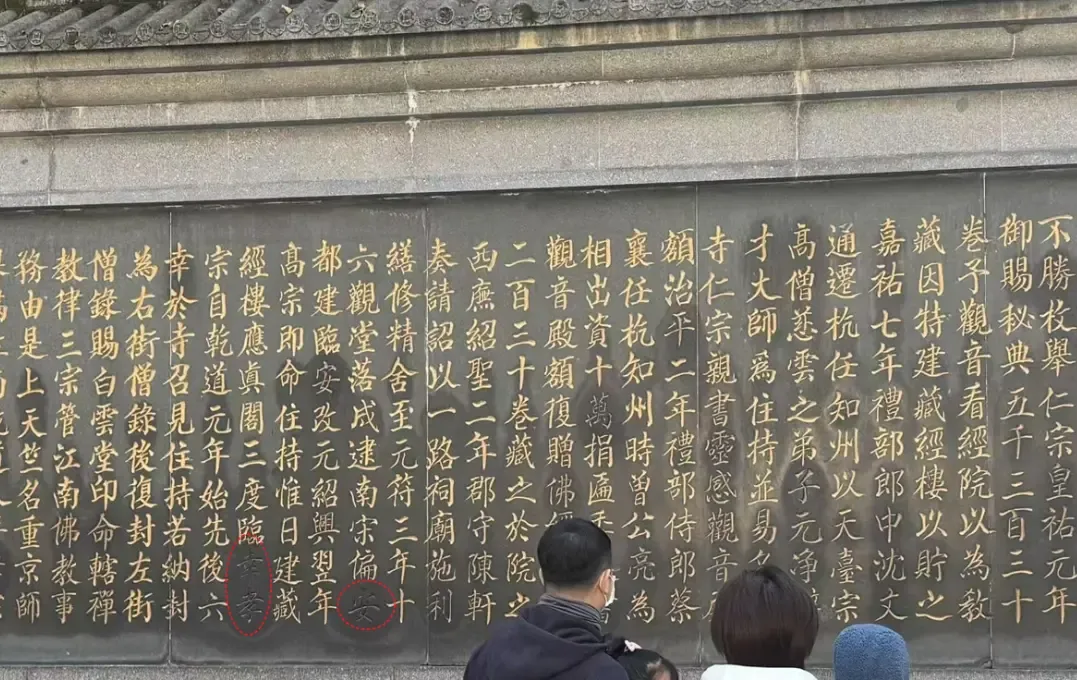 不勝枚舉仁宗皇祐元年
御賜秘典五千三百三十
卷予觀音看經院以為教
藏因特建藏經樓以貯之
嘉祐七年禮部郎中沈文
通遷杭任知州以天臺宗
髙僧慈雲之弟子元淨
才大師爲住持並易名
寺仁宗親書靈感觀音
額治平二年禮部侍郎蔡
襄任杭知州時曾公亮為
相出資十萬捐遍
觀音殿額復贈佛經
二百三十卷藏之於院之
西廡紹聖二年郡守陳軒
奏請詔以一路祠廟施利
繕修精舍至元符三年十
六觀堂落成逮南宋偏安
都建臨安改元紹興翌年
髙宗即命住持惟日建藏
經樓應真閣三度臨幸孝
宗自乾道元年始先後六
幸於寺召見住持若納封
為右街僧錄後復封左街
僧錄賜白雲堂印命轄禪
教律三宗管江南佛教事
務由是上天竺名重京師